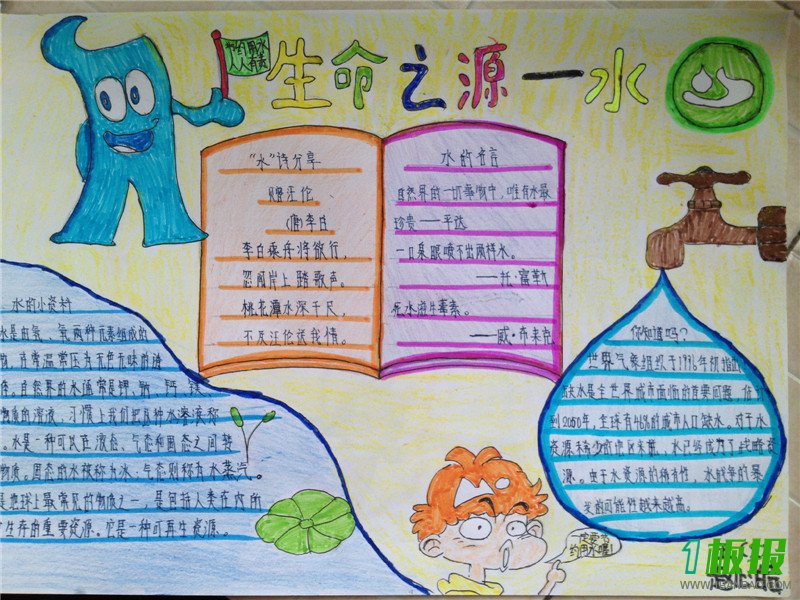 生命之源一水
节约用水
人人有责
"水"诗分享
赠汪伦
(唐)李白
李白乘舟将欲行,
忽闻岸上踏歌声。
桃花潭水深千尺,
不及汪伦送我情。
水的名言
自然界的一切事物中,唯有水最
珍贵——平达
一口泉眼喷不出两样水。
——托·富勒
死水滋生毒素。
——威·布来克
水的小资料
水是由氢、氧两种元素组成的
物,在常温常压为无色无味的透
自然界的水通常是钾、钠、钙、镁
物质的溶液,习惯上我们把各种水溶液称
水是一种可以在液态、气态和固态之间转
物质。固态的水被称为冰,气态则称为水蒸气。
是地球上最常见的物质之一,是包括人类在内所
生存的重要资源。它是一种可再生资源。
你知道吗?
世界气象组织于1996年初指出
缺水是全世界城市面临的首要问题,估计
到2050年,全球有46%的城市人口缺水。对于水
资源稀少的地区来说,水已经成为了战略资
源。由于水资源的稀有性,水战争的暴
发的可能性越来越高。
一定要节
约用水喔!
1板报